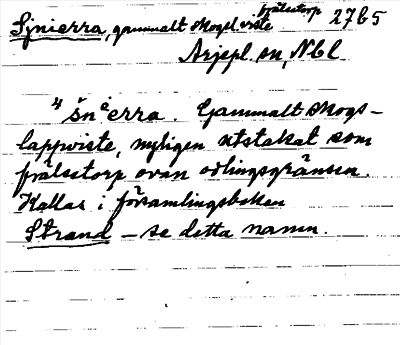 Sjnierra, gammalt skogsl. viste frälsetorp 2765
Arjepl. sn, Nbl
⁴ šnᵉerra. Gammalt skogs-
lappviste, nyligen utstakat som
frälsetorp ovan odlingsgränsen.
Kallas i församlingsboken
Strand – se detta namn.